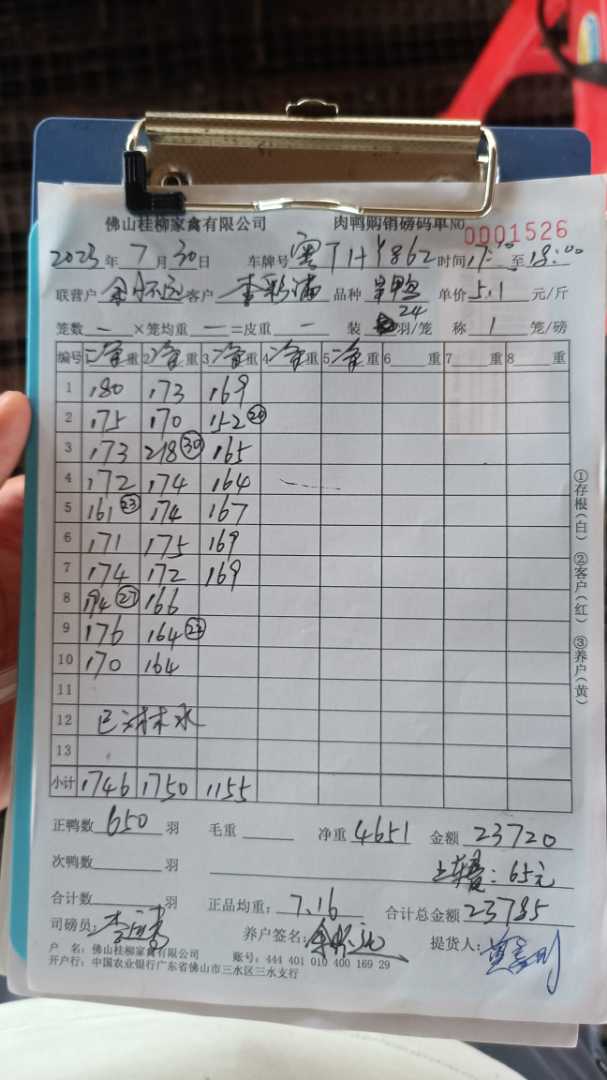 佛山桂柳家禽有限公司 肉鸭购销磅码单 NO 0001526
2023年7月30日 车牌号 粤 时间 17: 至 18:00
联营户 余怀远 客户 李彩满 品种 鸭 单价 5.1 元/斤
笼数 — ×笼均重 — =皮重 — 装 24 羽/笼 称 1 笼/磅
编号 净重 2净重 3净重 4净重 5净重 6 重 7 重 8 重
1 180 173 169
2 175 170 152 ㉑
3 173 218 ㉚ 165
4 172 174 164
5 161 ㉓ 174 167
6 171 175 169
7 174 172 169
8 194 ㉗ 166
9 176 164 ㉓
10 170 164
11
12 水
13
小计 1746 1750 1155
①存根(白) ②客户(红) ③养户(黄)
正鸭数 650 羽 毛重 净重 4651 金额 23720
次鸭数 羽 上车费:65元
合计数 羽 正品均重: 7.16 合计总金额 23785
司磅员: 养户签名: 余怀远 提货人:
户 名: 佛山桂柳家禽有限公司 账号: 444 401 010 400 169 29
开户行: 中国农业银行广东省佛山市三水区三水支行